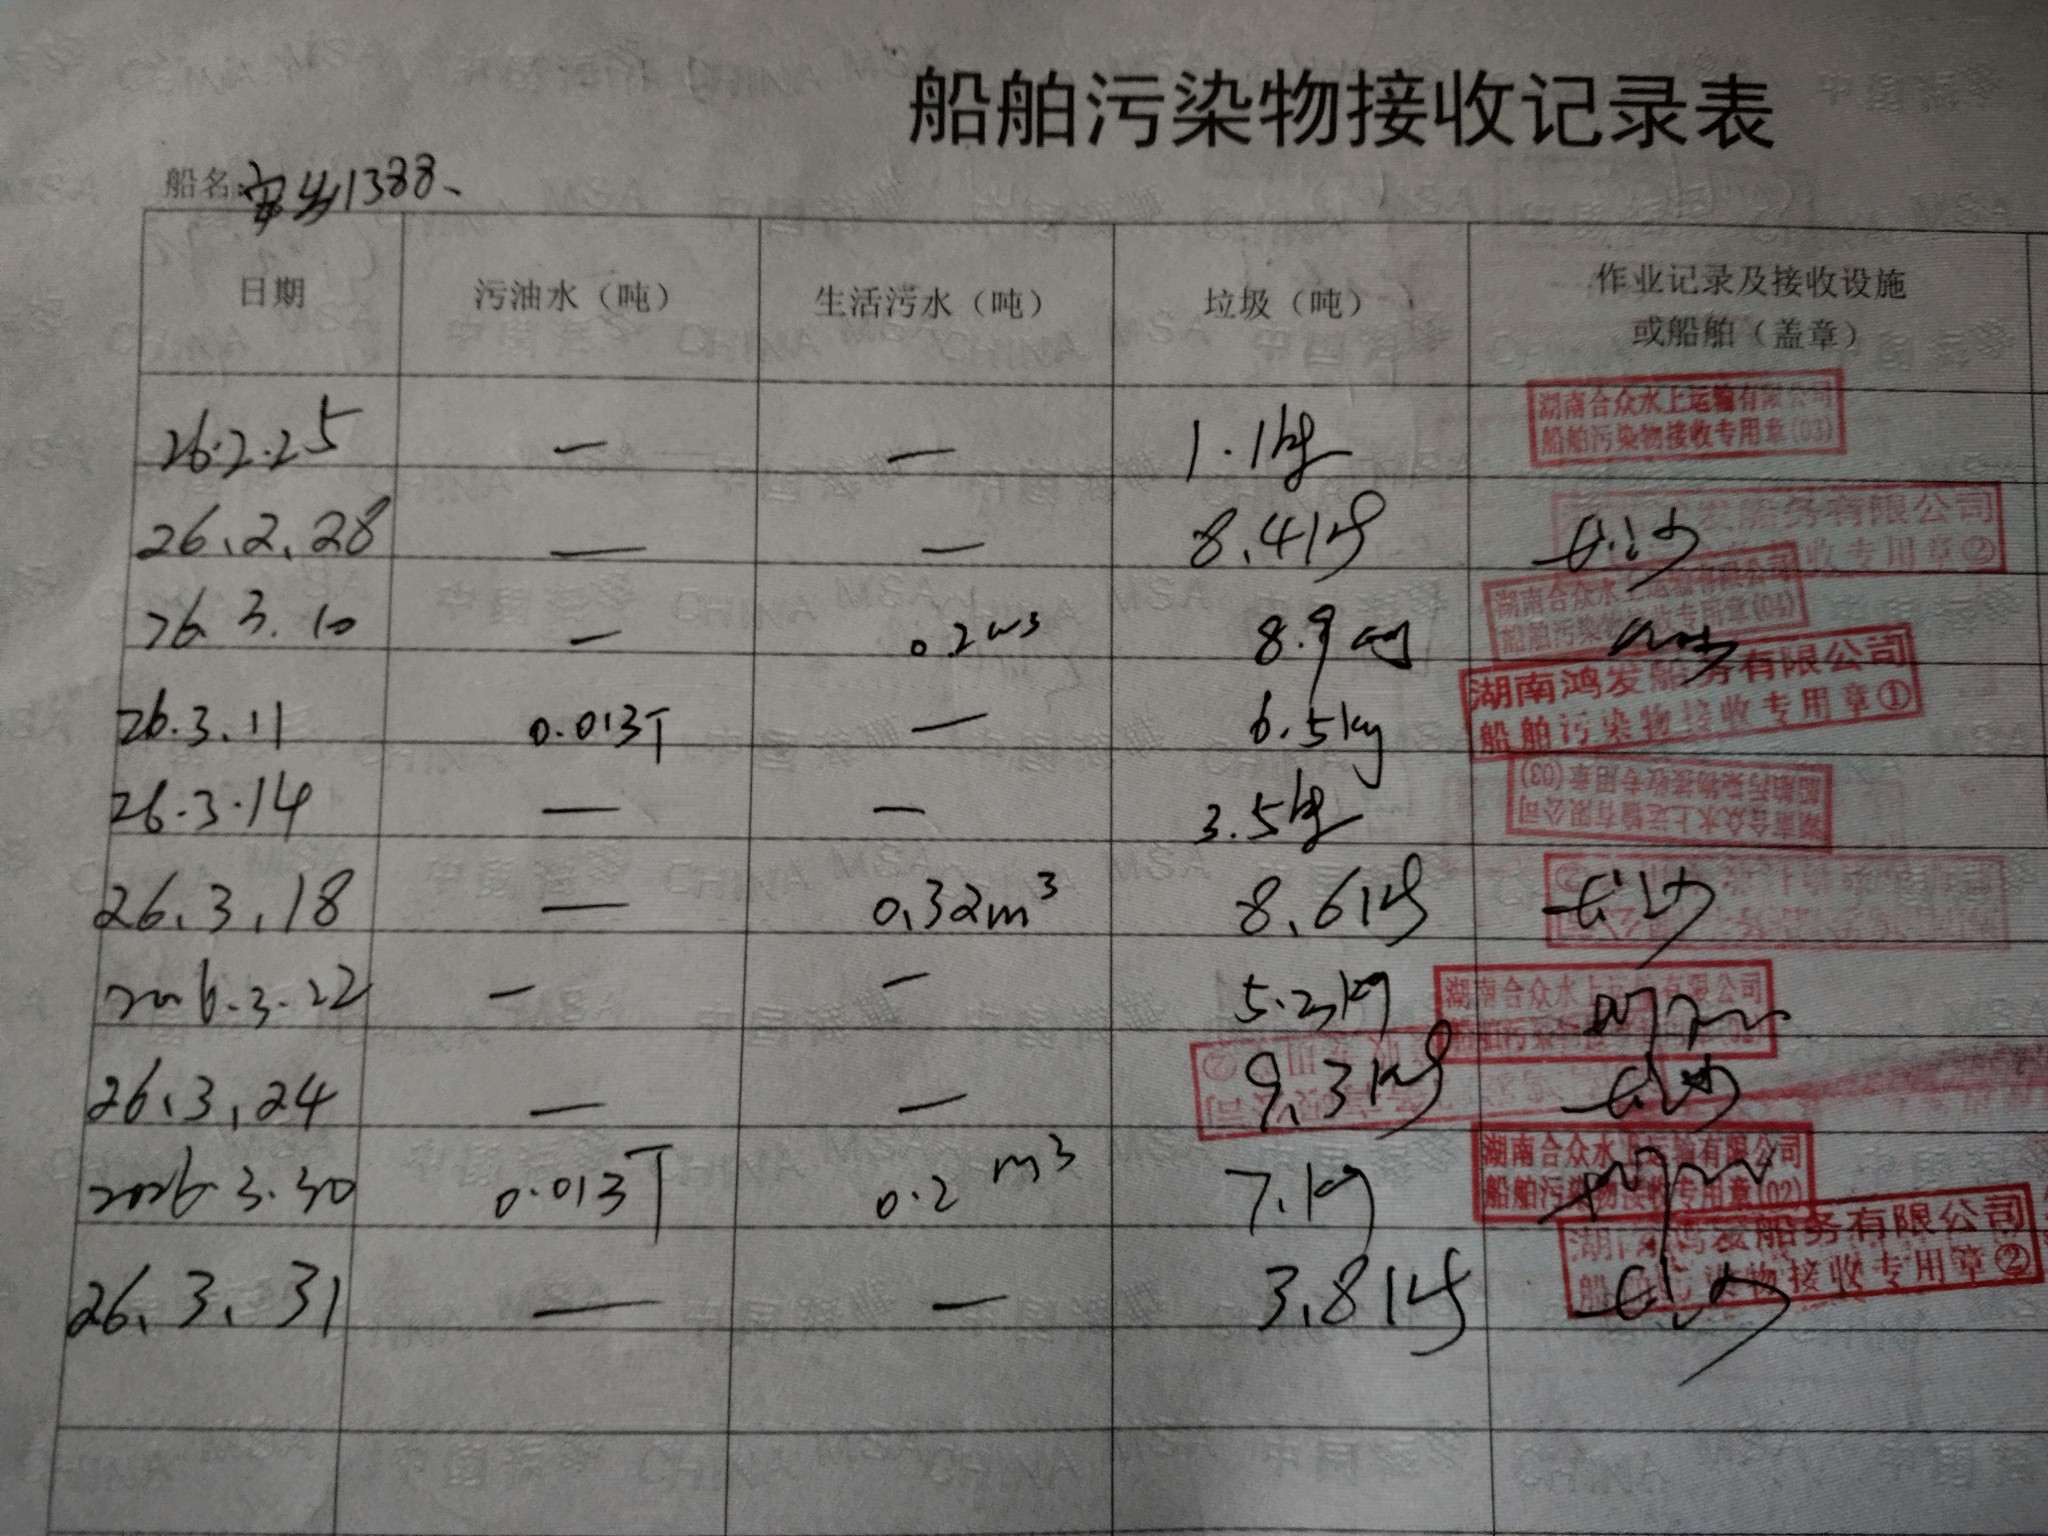 船舶污染物接收记录表
船名:安乡1388、
日期 污油水（吨） 生活污水（吨） 垃圾（吨） 作业记录及接收设施
或船舶（盖章）
26.2.25 — — 1.1kg 湖南合众水上运输有限公司
船舶污染物接收专用章(03)
26.2.28 — — 8.4kg 长沙 发船务有限公司
接收专用章②
26.3.10 — 0.2m3 8.9kg 湖南合众水上运输有限公司
船舶污染物接收专用章(04)
26.3.11 0.013T — 6.5kg 湖南鸿发船务有限公司
船舶污染物接收专用章①
26.3.14 — — 3.5kg 湖南合众水上运输有限公司
船舶污染物接收专用章(03)
26.3.18 — 0.32m³ 8.6kg 长沙
2026.3.22 — — 5.2kg 湖南合众水上运输有限公司
船舶污染物
26.3.24 — — 9.3kg 长沙
2026.3.30 0.013T 0.2 m3 7.1kg 湖南合众水上运输有限公司
船舶污染物接收专用章(02)
26.3.31 — — 3.8kg 长沙 湖南鸿发船务有限公司
船舶污染物接收专用章②
中国海事 CHINA MSA